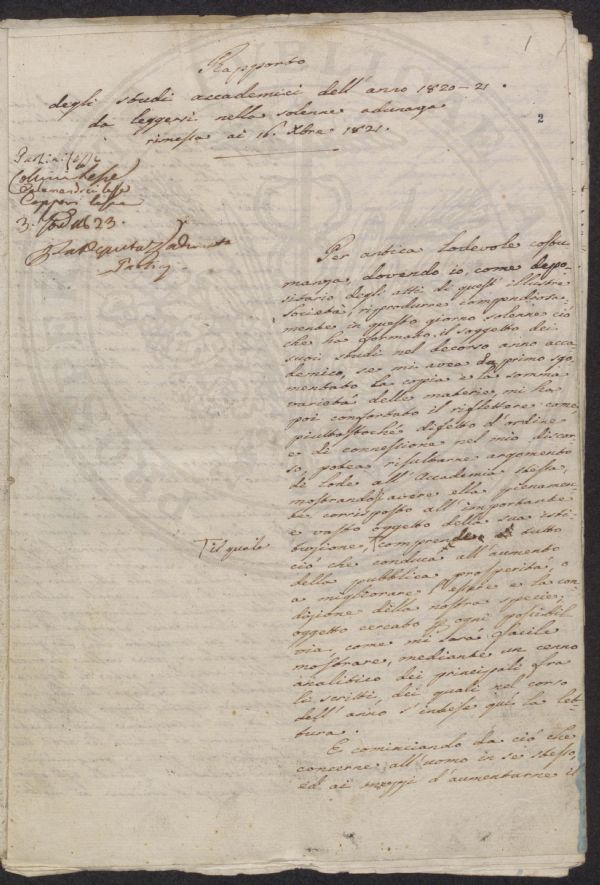 1
2
Rapporto
degli studi accademici dell'anno 1820–21.
da leggersi nella solenne adunaza
rimessa ai 16. Xbre 1821.
3. 23.
Per antica lodevole costu-
manza, dovendo io, come depo-
sitario degli atti di quest'illustre
Società, riprodurre compendiosa-
mente in questo giorno solenne ciò
che ha formato il soggetto dei
suoi studi nel decorso anno acca-
demico, se mi avea da primo sgo-
mentato la copia e la somma
varietà delle materie, mi ha
poi confortato il riflettere come,
piuttostoché difetto d'ordine
e di connessione nel mio discor-
so, potea risultarne argomento
di lode all'Accademia stessa,
mostrando avere ella pienamen-
te corrisposto all'importante
e vasto oggetto della sua isti-
tuzione, tutto
il quale
ciò che conduca all'aumento
della pubblica prosperità, o
a migliorare l'essere e la con-
dizione della nostra specie;
oggetto cercato p ogni possibil
via, come mi sarà facile
mostrare, mediante un cenno
analitico dei principali fra
li scritti, dei quali nel corso
dell'anno s'intese qui la let-
tura.
E cominciando da ciò che
concerne all'uomo in se stesso,
ed ai mezzi d'aumentarne il